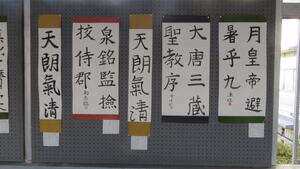 月皇帝避
暑乎九
大唐三蔵
聖教序
天朗氣清
泉銘監撿
挍侍郡
天朗氣清